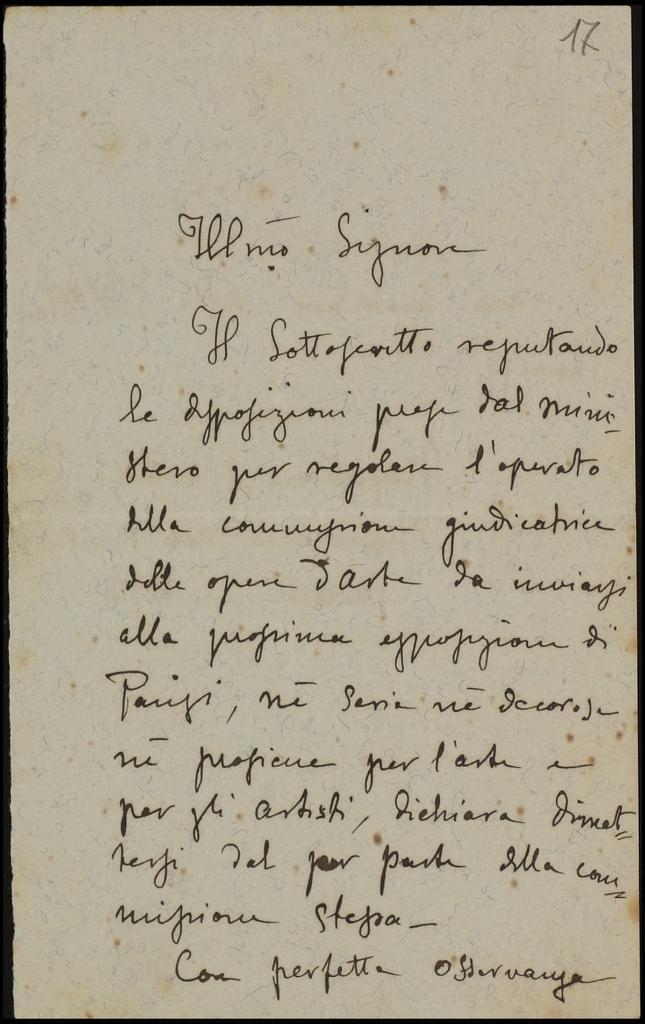 17
Illmo Signore
Il Sottoscritto reputando
le disposizioni prese dal mini=
stero per regolare l'operato
della commissione giudicatrice
delle opere d'arte da inviarsi
alla prossima esposizione di
Parigi, nè serie nè decorose
nè proficue per l'arte e
per gli artisti, dichiara dimet=
tersi dal par parte della com=
missione stessa—
Con perfetta osservanza